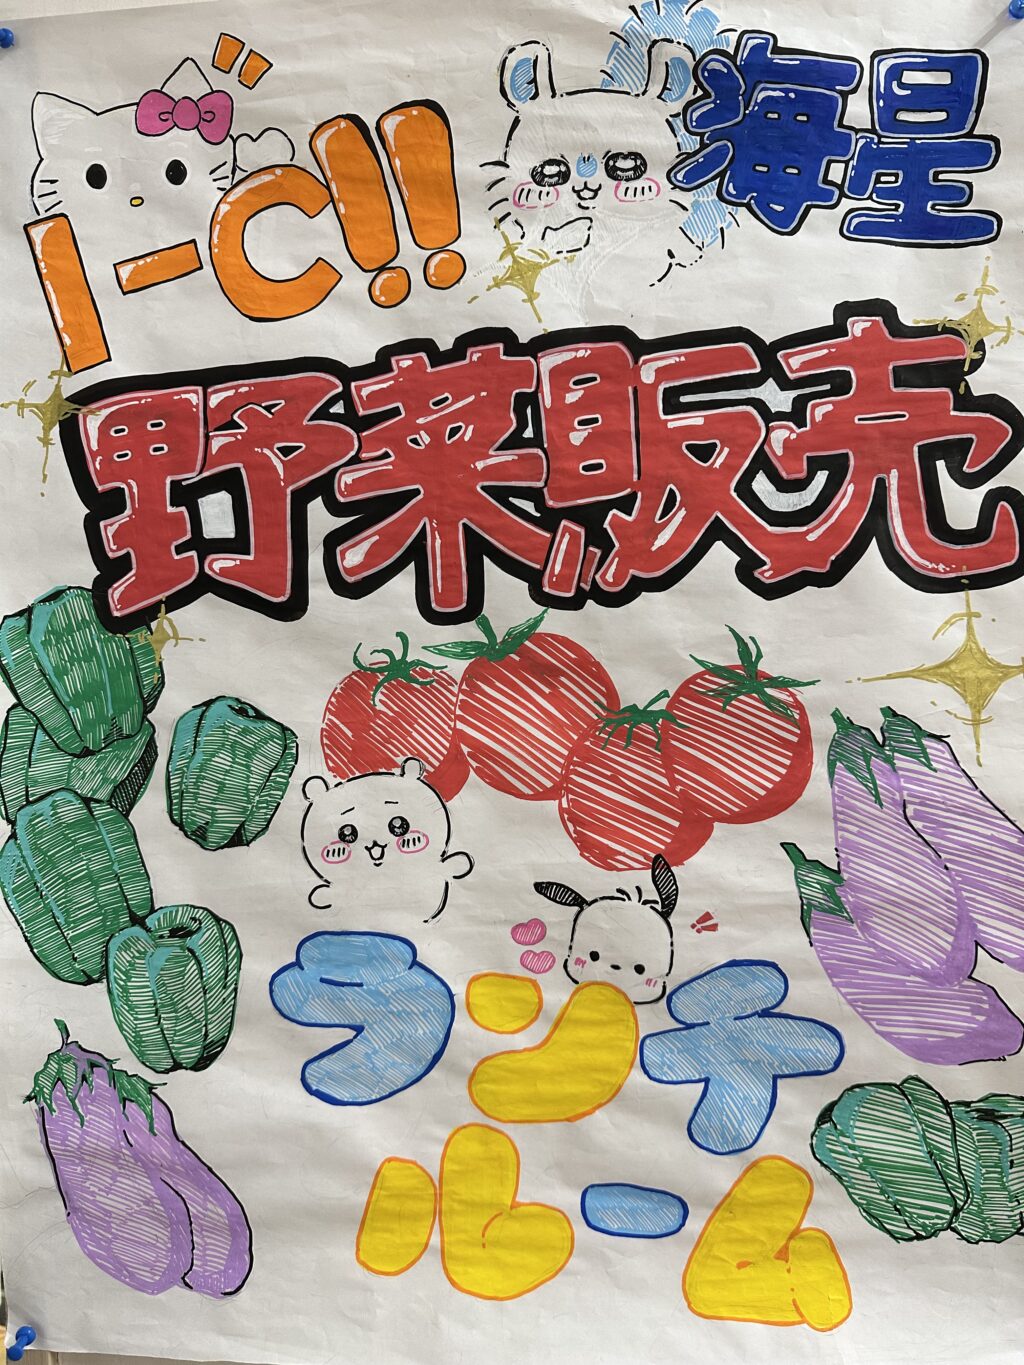 1-C!!
海星
野菜販売
ランチ
ルーム